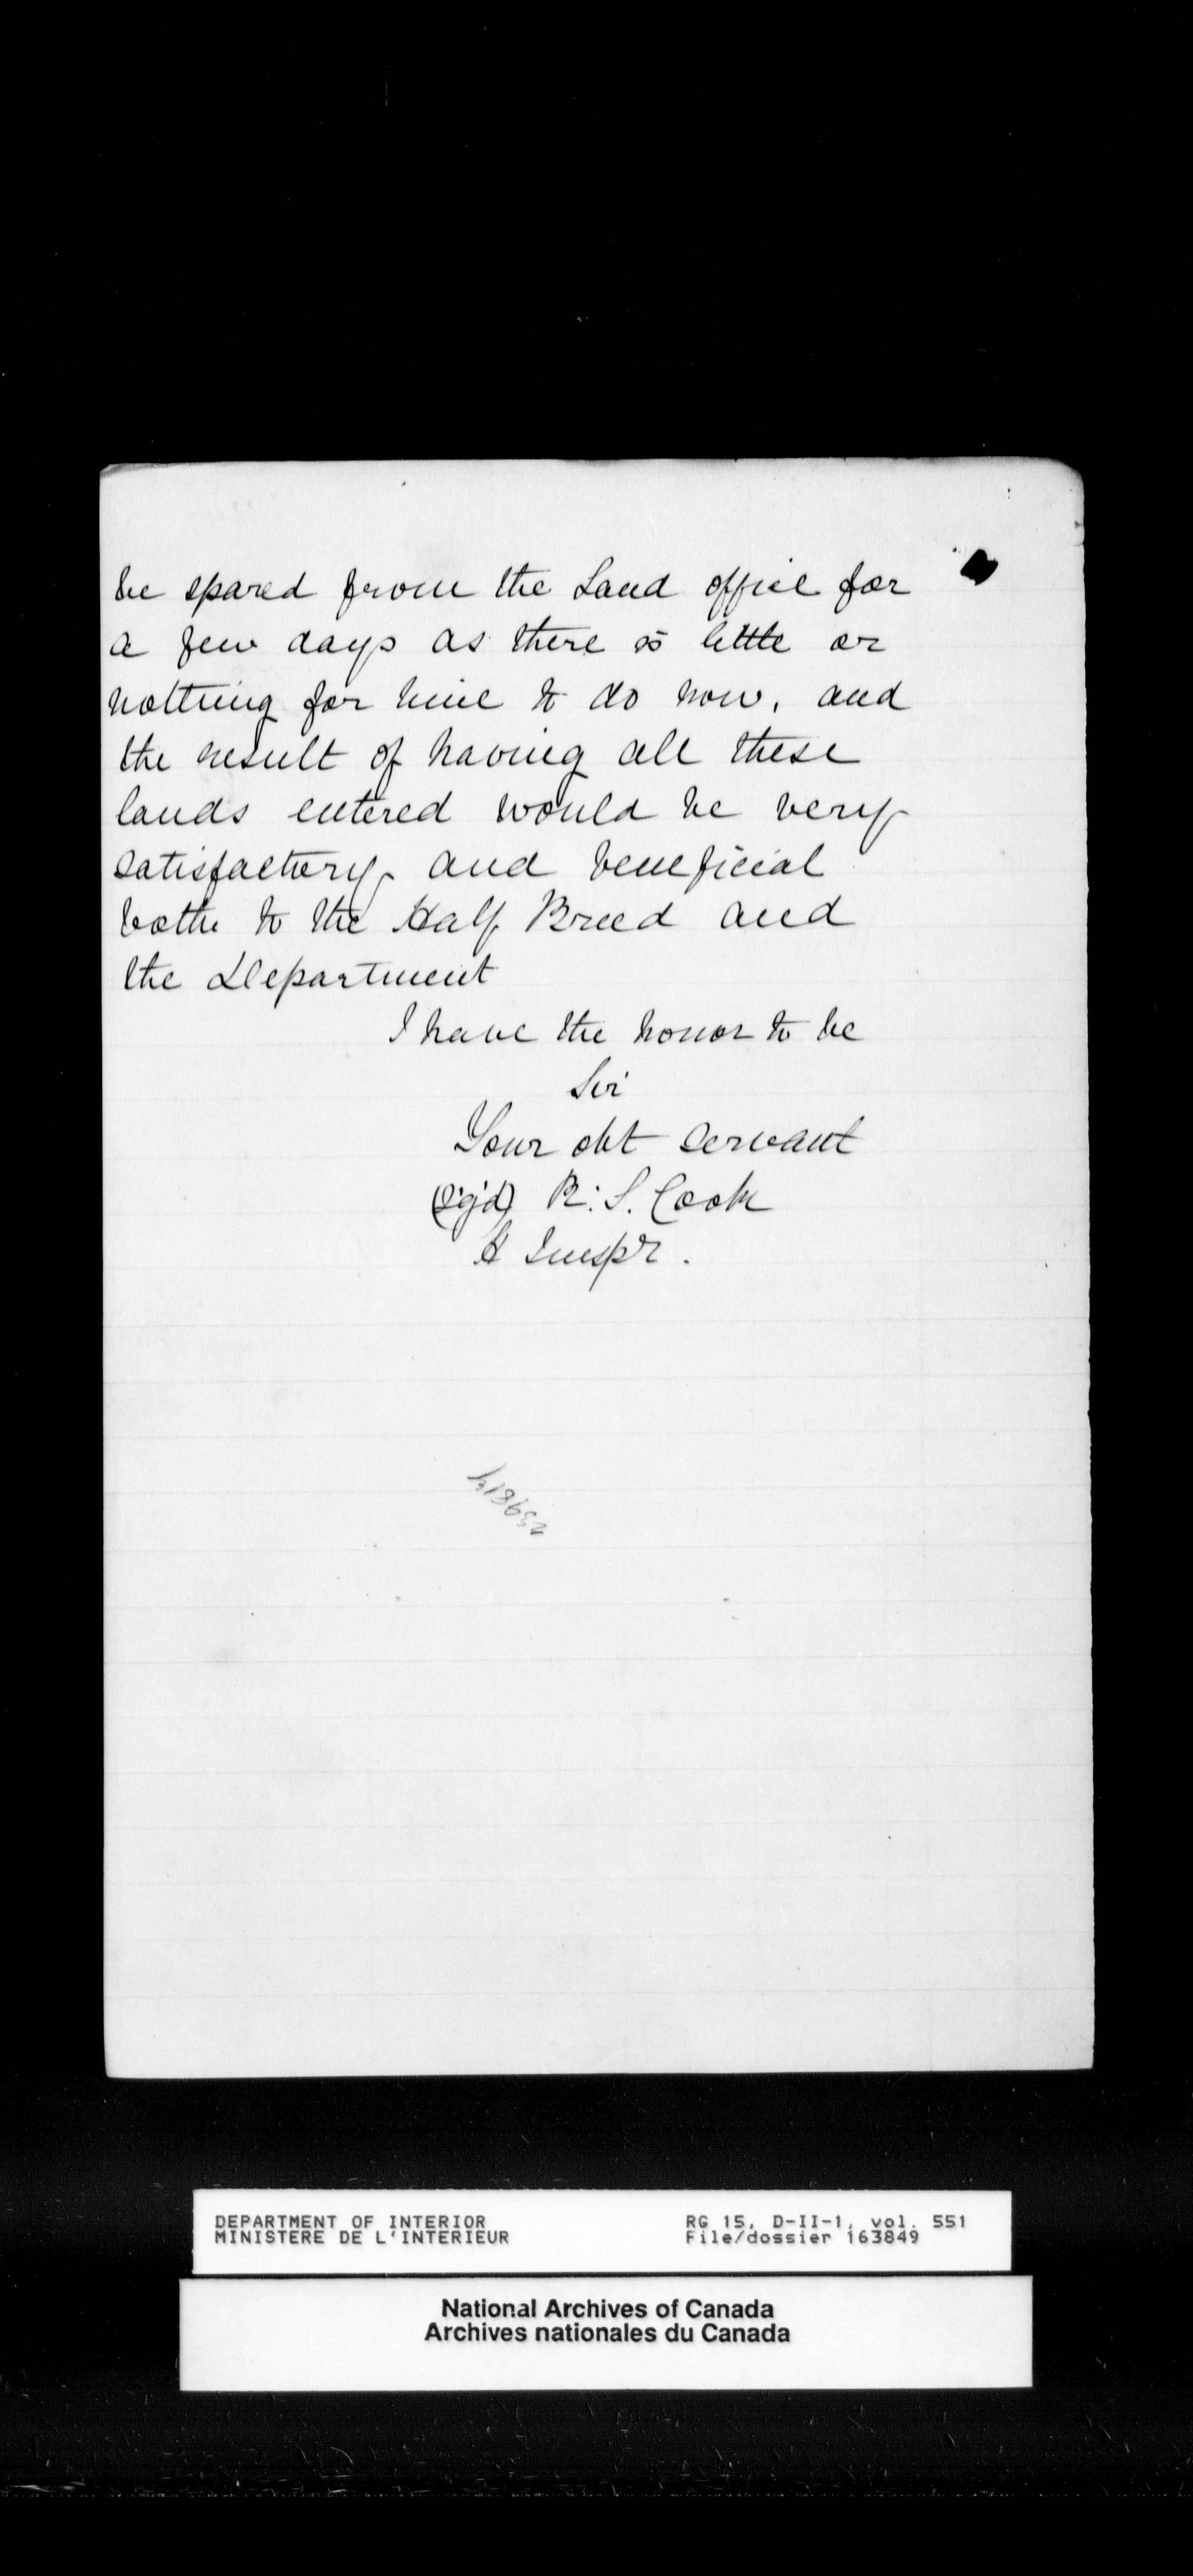 be spared from the Land office for
a few days as there is little or
nothing for him to do now, and
the result of having all these
lands entered would be very
satisfactory and beneficial
both to the Half Breed and
the Department
I have the honor to be
Sir
Your obt servant
(Sg'd) R. S. Cook
H Inspr.
DEPARTMENT OF INTERIOR
MINISTERE DE L'INTERIEUR
RG 15, D-II-1, vol. 551
File/dossier 163849
National Archives of Canada
Archives nationales du Canada